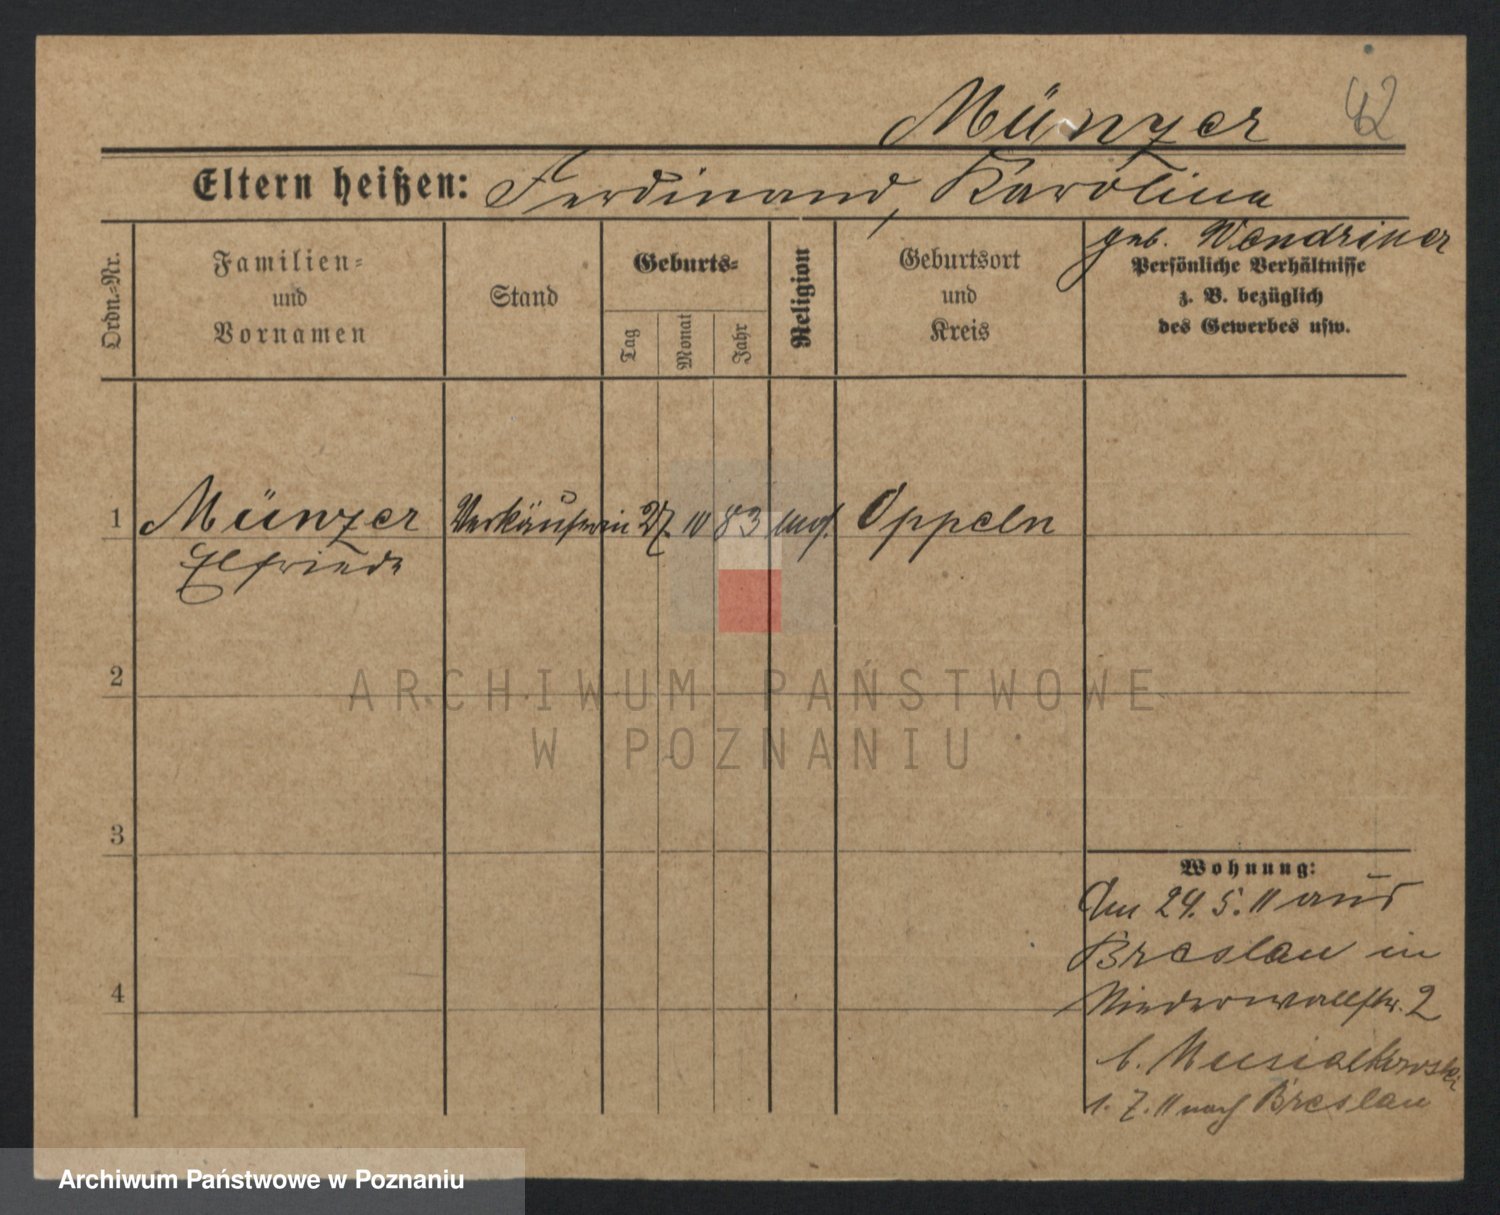 42
Münzer
Eltern heißen: Ferdinand, Karolina
geb. Wendriner
Ordn.-Nr.
Familien-
und
Vornamen
Stand
Geburts-
Tag
Monat
Jahr
Religion
Geburtsort
und
Kreis
Persönliche Verhältnisse
z. B. bezüglich
des Gewerbes usw.
1 Münzer Verkäuferin 27. 10 83 mos. Oppeln
Elfriede
2
3
4
Wohnung:
Am 24. 5. 11 aus
Breslau in
Niederwallstr. 2
b. Musialkowski
1. 7. 11 nach Breslau
ARCHIWUM PAŃSTWOWE
W POZNANIU
Archiwum Państwowe w Poznaniu